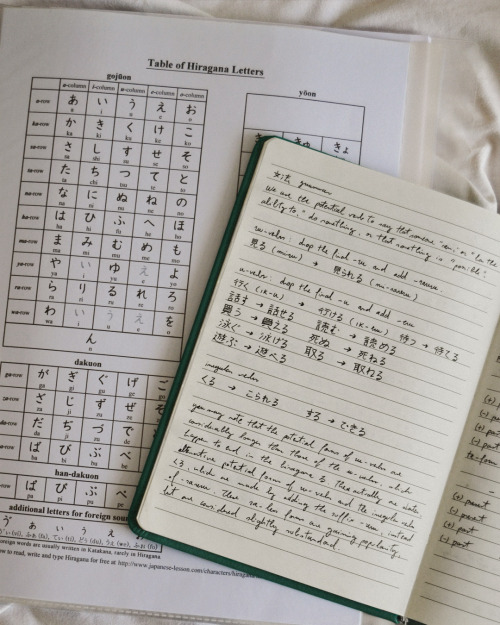 Table of Hiragana Letters
gojūon
a-column i-column u-column e-column o-column
a-row あ い う え お
a i u e o
ka-row か き く け こ
ka ki ku ke ko
sa-row さ し す せ そ
sa shi su se so
ta-row た ち つ て と
ta chi tsu te to
na-row な に ぬ ね の
na ni nu ne no
ha-row は ひ ふ へ ほ
ha hi fu he ho
ma-row ま み む め も
ma mi mu me mo
ya-row や い ゆ え よ
ya i yu e yo
ra-row ら り る れ ろ
ra ri ru re ro
wa-row わ い う え を
wa i u e o
ん
n
dakuon
ga-row が ぎ ぐ げ ご
ga gi gu ge go
za-row ざ じ ず ぜ ぞ
za ji zu ze
da-row だ ぢ づ で
da ji zu de
ba-row ば び ぶ べ
ba bi bu be
han-dakuon
pa-row ぱ ぴ ぷ ぺ
pa pi pu pe
additional letters for foreign sou
う あ い う え
foreign words are usually written in Katakana, rarely in Hiragana
how to read, write and type Hiragana for free at http://www.japanese-lesson.com/characters/hiragana
yōon
きゃ きゅ きょ
grammar
We use the potential verb to say that someone "can" or "has the
ability to" do something, or that something is "possible".
ru-verbs: drop the final -ru and add -rareru
見る (mi-ru) → 見られる (mi-rareru)
u-verbs: drop the final -u and add -eru
行く (ik-u) → 行ける (ik-eru) 待つ → 待てる
話す → 話せる 読む → 読める
買う → 買える 死ぬ → 死ねる
泳ぐ → 泳げる 取る → 取れる
遊ぶ → 遊べる
irregular verbs
くる → こられる する → できる
you may note that the potential forms of ru-verbs are
considerably longer than those of the u-verbs, which
happen to end in the hiragana る. There actually are
alternative potential forms of ru-verbs and the irregular verb
くる, which are made by adding the suffix -reru, instead
of -rareru. These ra-less forms are gaining popularity,
but are considered slightly substandard.
te-form